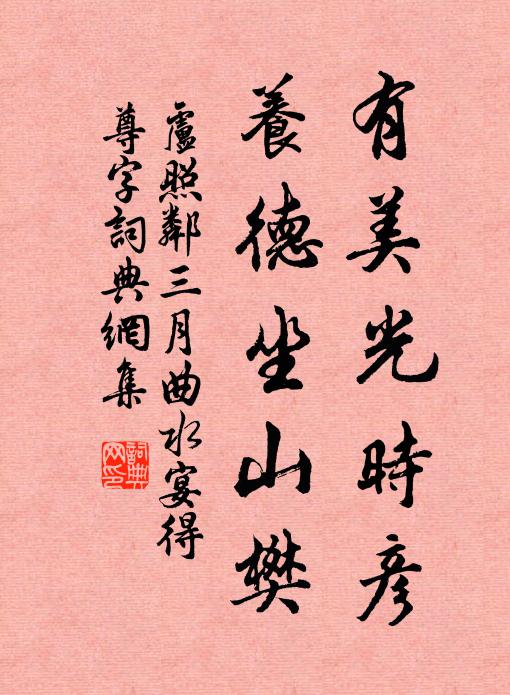 有美光時彥
養德坐山樊
盧照鄰三月曲水宴得
尊字詞典網集
詞典網印